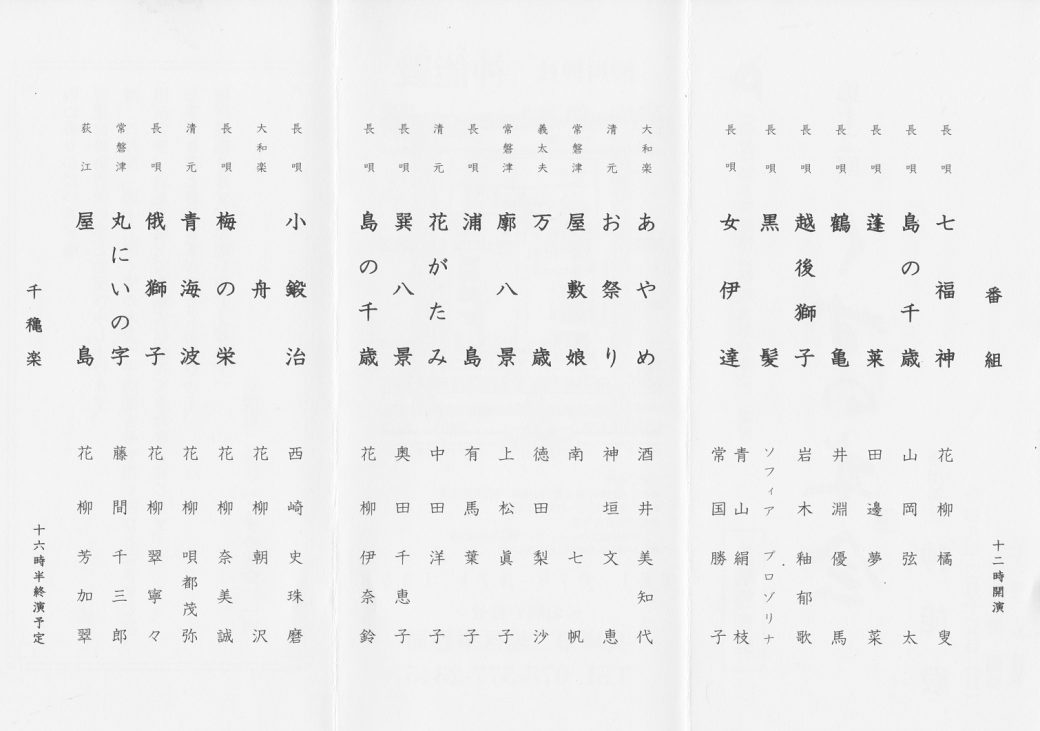 番組
十二時開演
長唄 七福神 花柳橘叟
長唄 島の千歳 山岡弦太
長唄 蓬莱 田邊夢菜
長唄 鶴亀 井淵優馬
長唄 越後獅子 岩木釉郁歌
長唄 黒髪 ソフィア ブロゾリナ
長唄 女伊達 青山絹枝
常国勝子
大和楽 あやめ 酒井美知代
清元 お祭り 神垣文恵
常磐津 屋敷娘 南七帆
義太夫 万歳 徳田梨沙
常磐津 廓八景 上松眞子
長唄 浦島 有馬葉子
清元 花がたみ 中田洋子
長唄 巽八景 奥田千恵子
長唄 島の千歳 花柳伊奈鈴
長唄 小鍛冶 西崎史珠磨
大和楽 舟 花柳朝沢
長唄 梅の栄 花柳奈美誠
清元 青海波 花柳唄都茂弥
長唄 俄獅子 花柳翠寧々
常磐津 丸にいの字 藤間千三郎
荻江 屋島 花柳芳加翠
千穐楽
十六時半終演予定